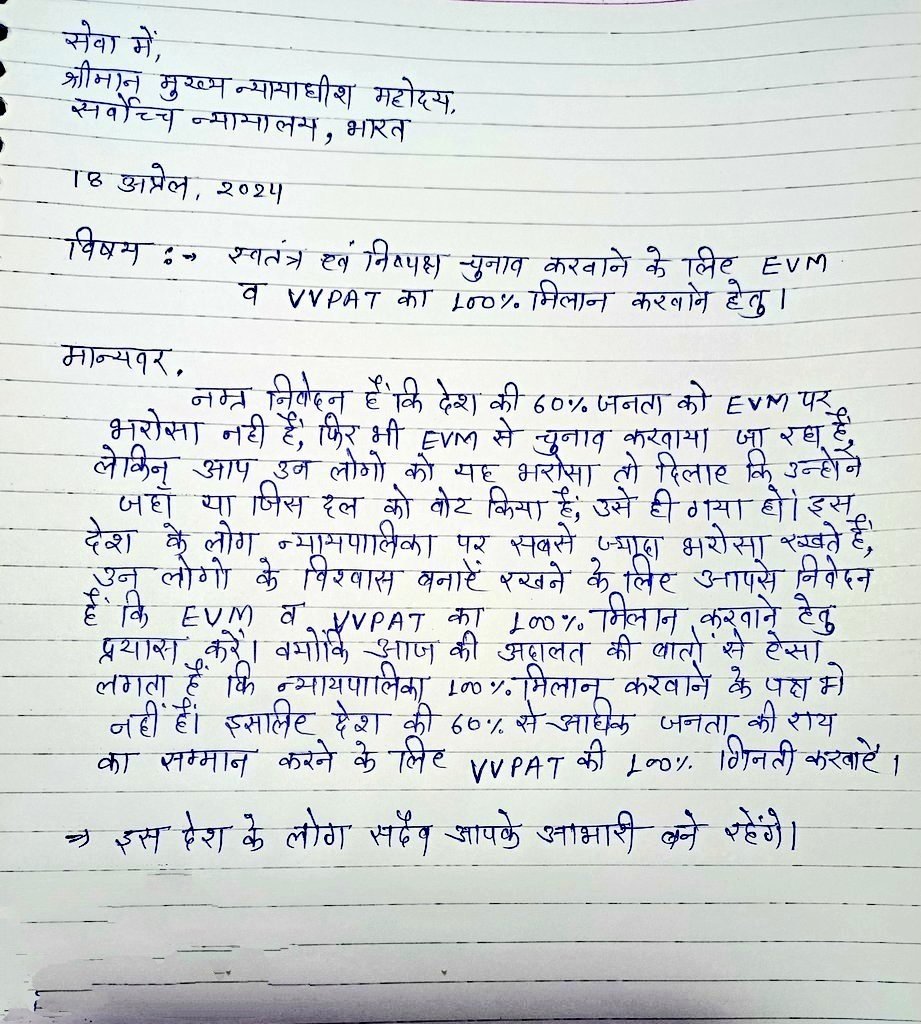 सेवा में,
श्रीमान मुख्य न्यायाधीश महोदय,
सर्वोच्च न्यायालय, भारत
18 अप्रेल, 2024
विषय :→ स्वतंत्र एवं निष्पक्ष चुनाव करवाने के लिए EVM
व VVPAT का 100% मिलान करवाने हेतु।
मान्यवर,
नम्र निवेदन हैं कि देश की 60% जनता को EVM पर
भरोसा नही हैं, फिर भी EVM से चुनाव करवाया जा रहा हैं,
लेकिन आप उन लोगो को यह भरोसा तो दिलाए कि उन्होंने
जहाँ या जिस दल को वोट किया हैं, उसे ही गया हो। इस
देश के लोग न्यायपालिका पर सबसे ज्यादा भरोसा रखते हैं,
उन लोगो के विश्वास बनाऐं रखने के लिए आपसे निवेदन
हैं कि EVM व VVPAT का 100% मिलान करवाने हेतु
प्रयास करें। क्योंकि आज की अदालत की बातों से ऐसा
लगता हैं कि न्यायपालिका 100% मिलान करवाने के पक्ष मे
नहीं हैं। इसलिए देश की 60% से अधिक जनता की राय
का सम्मान करने के लिए VVPAT की 100% गिनती करवाऐं।
⇒ इस देश के लोग सदैव आपके आभारी बने रहेंगे।